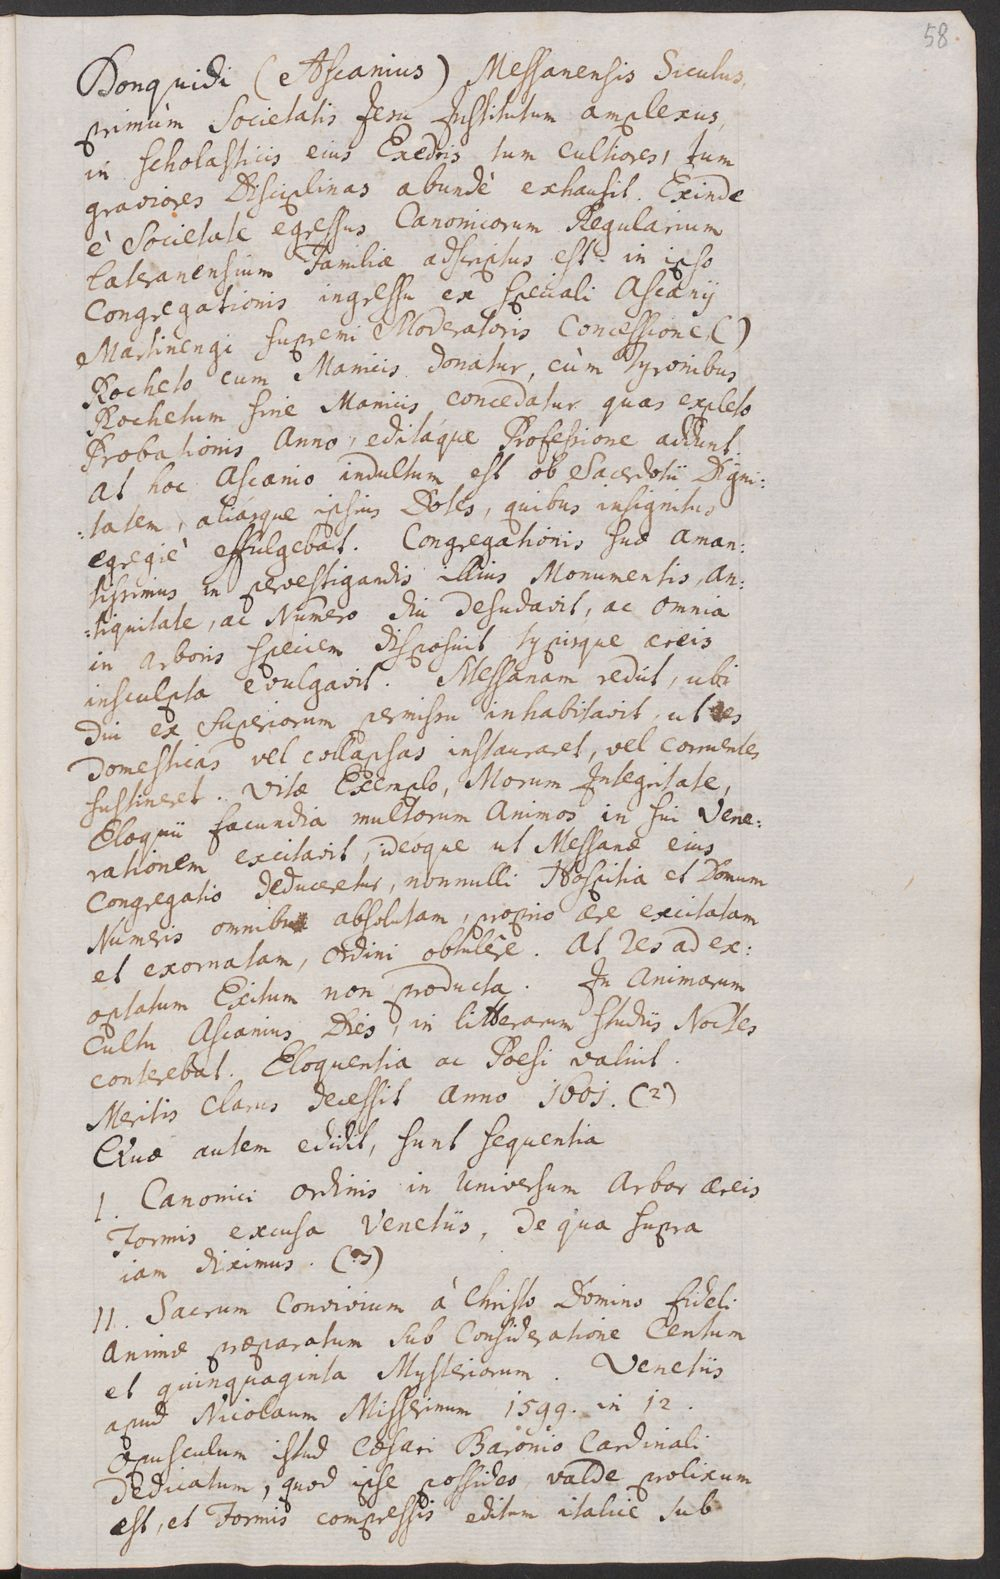 58.
Bonquidi (Ascanius) Messanensis Siculus,
primùm Societatis Jesu Institutum amplexus,
in scholasticis eius Exedris tum cultiores, tum
graviores Disciplinas abundè exhausit. Exinde
è Societate egressus Canonicorum Regularium
Lateranensium Familiæ adscriptus est. in ipso
Congregationis ingressu ex speciali Ascanij
Martinengi supremi Moderatoris Concessione ()
Rocheto cum Manicis donatur, cùm Tyronibus
Rochetum sine Manicis concedatur quas expleto
Probationis Anno, editáque Professione addunt.
At hoc Ascanio indultum est ob Sacerdotii Digni:
:tatem, aliásque ipsius Dotes, quibus insignitus
egregiè effulgebat. Congregationis suæ aman:
tissimus in pervestigandis illius Monumentis, An:
:tiquitate, ac Numero diu desudavit, ac omnia
in Arboris speciem disposuit typisque æreis
insculpta evulgavit. Messanam rediit, ubi
diu ex Superiorum permissu inhabitavit, ut res
domesticas vel collapsas instauraret, vel corruentes
sustineret. Vitæ Exemplo, Morum Integritate,
Eloquii facundia multorum Animos in sui Vene:
rationem excitavit, ideoque ut Messanæ eius
Congregatio deduceretur, nonnulli Hospitia et Domum
Numeris omnibus absolutam, proprio ære excitatam
et exornatam, Ordini obtulêre. At res ad ex:
optatum Exitum non producta. In Animarum
Cultu Ascanius Dies, in litterarum studiis Noctes
conterebat. Eloquentia ac Poesi valuit.
Meritis Clarus decessit Anno 1601. (2)
Quæ autem edidit, sunt sequentia
I. Canonici Ordinis in Universum Arbor æreis
Formis excusa Venetiis, de qua supra
iam diximus. (3)
II. Sacrum Convivium à Christo Domino fideli
Animæ præparatum sub Consideratione Centum
et quinquaginta Mysteriorum. Venetiis
apud Nicolaum Misserinum 1599. in 12.
Opusculum istud Cæsari Baronio Cardinali
dedicatum, quod ipse possideo, valde prolixum
est, et Formis compressis editum italicè sub